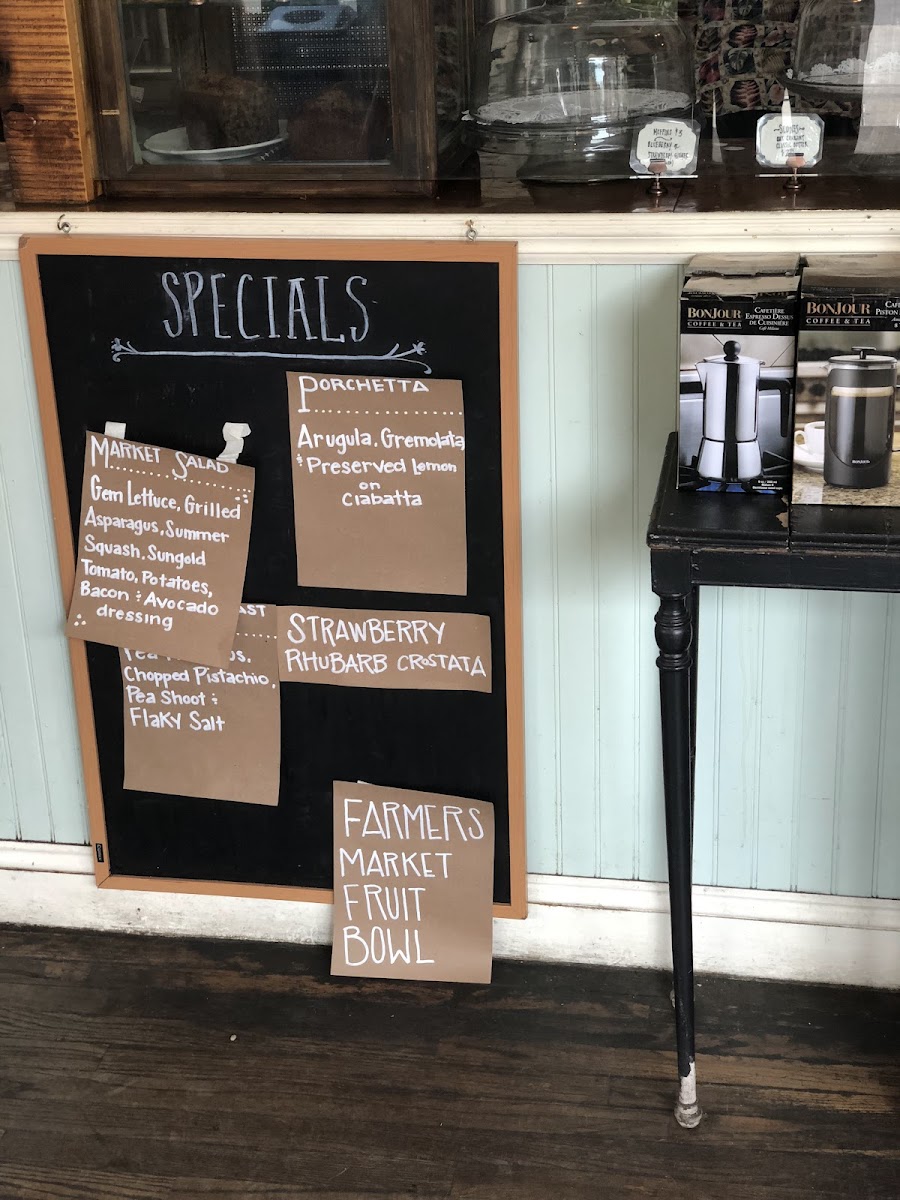 MUFFINS $3
BLUEBERRY OR
SCONES
SPECIALS
PORCHETTA
Arugula, Gremolata,
& Preserved Lemon
on
Ciabatta
MARKET SALAD
Gem Lettuce, Grilled
Asparagus, Summer
Squash, Sungold
Tomato, Potatoes,
Bacon & Avocado
dressing
Chopped Pistachio,
Pea Shoot &
Flaky Salt
STRAWBERRY
RHUBARB CROSTATA
FARMERS
MARKET
FRUIT
BOWL
BONJOUR
COFFEE & TEA
CAFETIÈRE
ESPRESSO DESSUS
DE CUISINIÈRE
Café Milano
BONJOUR
COFFEE & TEA
PISTON
BONJOUR